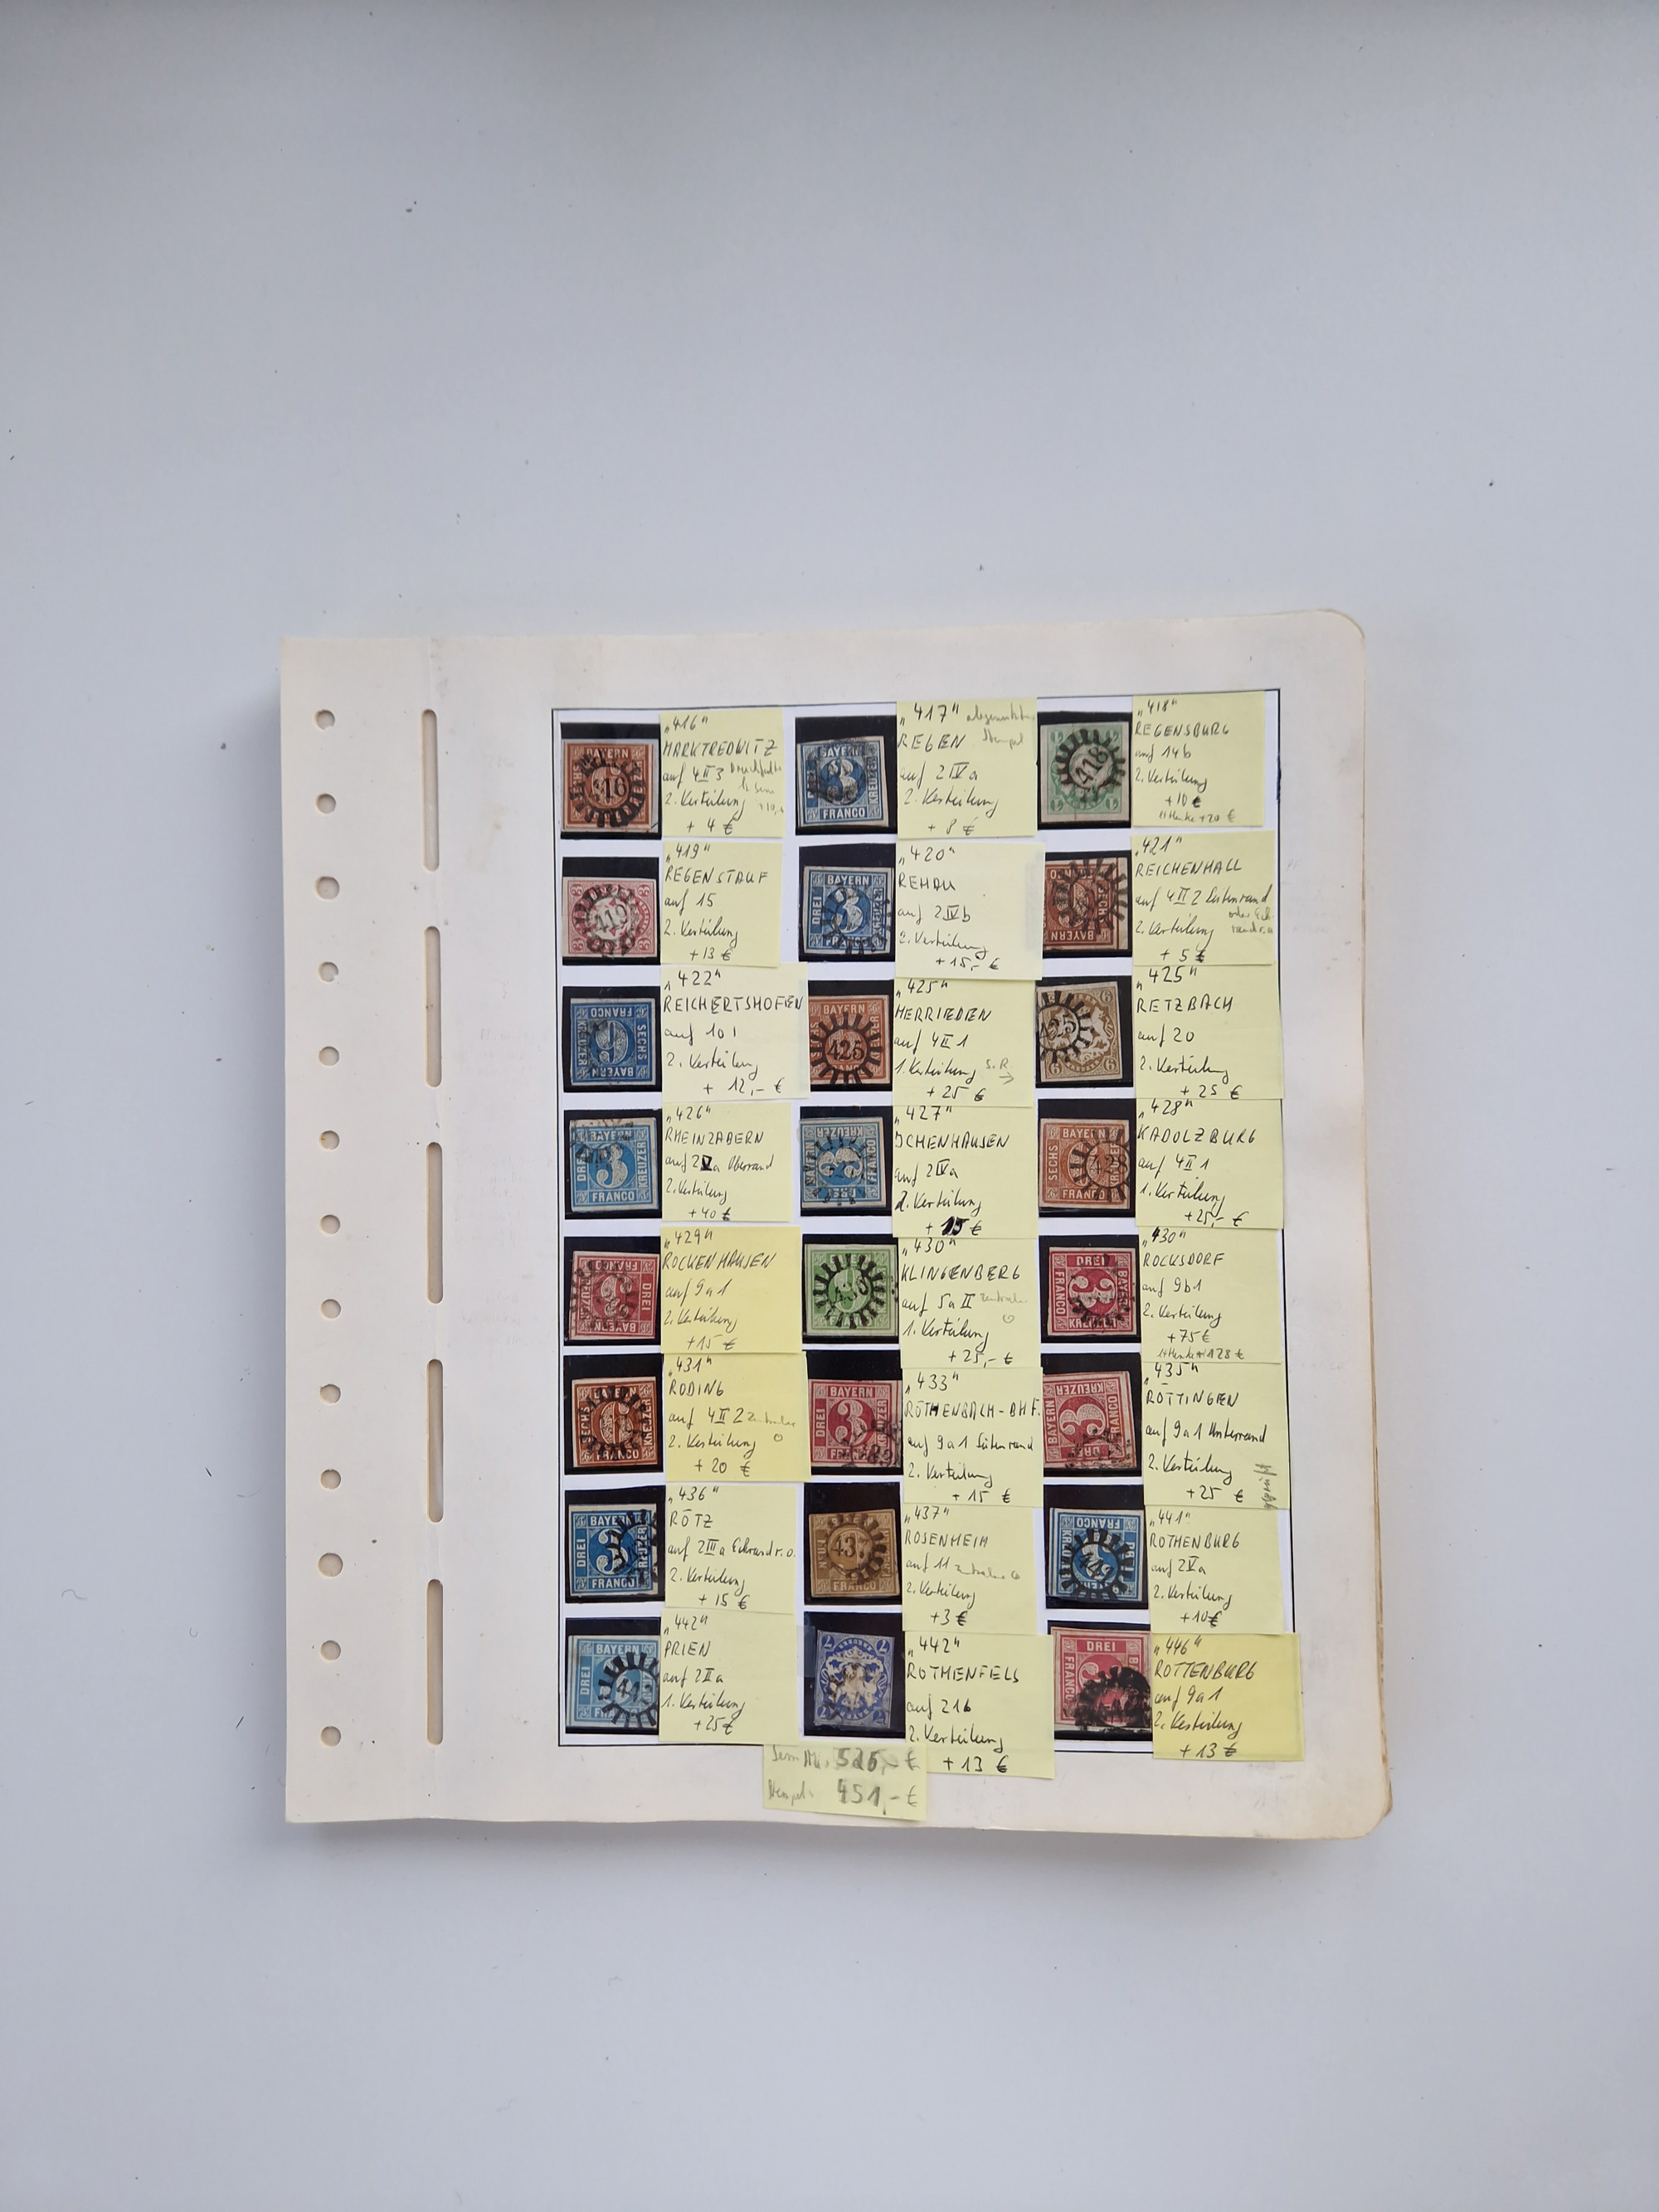 „416“
MARKTREDWITZ
auf 4 II 3
2. Verteilung
+ 4 €
„417“
REGEN Stempel
auf 2 IV a
2. Verteilung
+ 8 €
„418“
REGENSBURG
auf 14 b
2. Verteilung
+ 10 €
+ 20 €
„419“
REGENSTAUF
auf 15
2. Verteilung
+ 13 €
„420“
REHAU
auf 2 IV b
2. Verteilung
+ 15,- €
„421“
REICHENHALL
auf 4 II 2 Seitenrand
2. Verteilung
+ 5 €
„422“
REICHERTSHOFEN
auf 10 I
2. Verteilung
+ 12,- €
„425“
HERRIEDEN
auf 4 II 1
1. Verteilung S.R.
+ 25 €
„425“
RETZBACH
auf 20
2. Verteilung
+ 25 €
„426“
RHEINZABERN
auf 2 V a Oberrand
2. Verteilung
+ 40 €
„427“
ICHENHAUSEN
auf 2 IV a
1. Verteilung
+ 15 €
„428“
KADOLZBURG
auf 4 II 1
1. Verteilung
+ 25,- €
„429“
ROCKENHAUSEN
auf 9 a 1
2. Verteilung
+ 15 €
„430“
KLINGENBERG
auf 5 a II
1. Verteilung
+ 25,- €
„430“
ROCKSDORF
auf 9 b 1
2. Verteilung
+ 75 €
128 €
„431“
RODING
auf 4 II 2
2. Verteilung
+ 20 €
„433“
RÖTHENBACH-BHF.
auf 9 a 1 Seitenrand
2. Verteilung
+ 15 €
„435“
RÖTTINGEN
auf 9 a 1 Unterrand
2. Verteilung
+ 25 €
geprüft
„436“
RÖTZ
auf 2 III a Eckrand r. o.
2. Verteilung
+ 15 €
„437“
ROSENHEIM
auf 11
2. Verteilung
+ 3 €
„441“
ROTHENBURG
auf 2 V a
2. Verteilung
+ 10 €
„442“
PRIEN
auf 2 II a
1. Verteilung
+ 25 €
„442“
ROTHENFELS
auf 21 b
2. Verteilung
+ 13 €
„446“
ROTTENBURG
auf 9 a 1
2. Verteilung
+ 13 €
526,- €
Stempel: 451,- €
BAYERN
416
BAYERN
KREUZER
FRANCO
418
419
BAYERN
DREI
KREUZER
BAYERN
FRANCO
SECHS
KREUZER
BAYERN
BAYERN
425
425
6
BAYERN
3
KREUZER
FRANCO
KREUZER
DREI
BAYERN
SECHS
428
FRANCO
DREI
BAYERN
DREI
FRANCO
SECHS
FRANCO
BAYERN
DREI
3
KREUZER
BAYERN
FRANCO
BAYERN
DREI
FRANCO
FRANCO
FRANCO
BAYERN
DREI
DREI
FRANCO